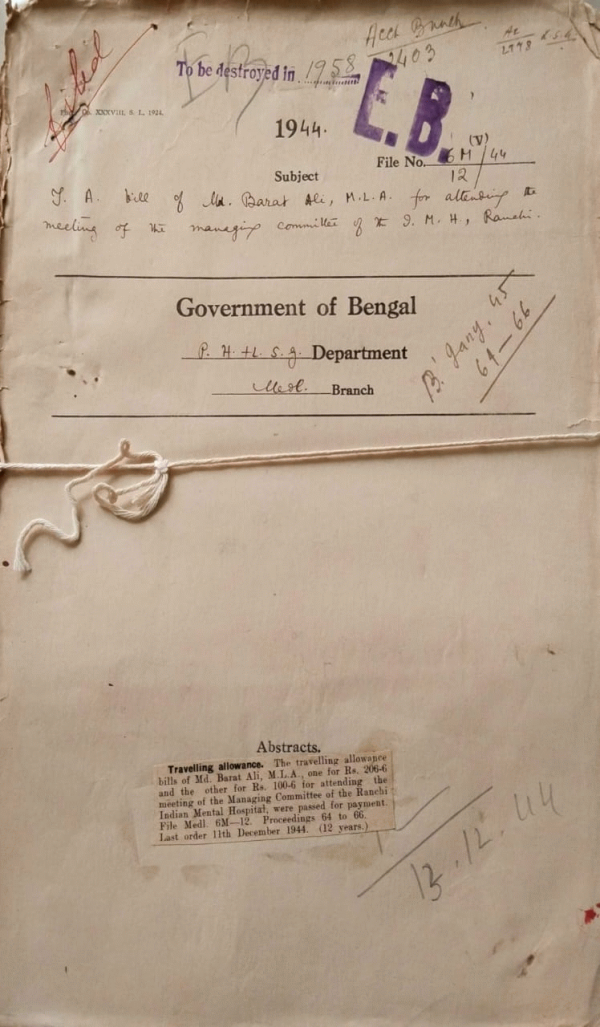 Acct Branch
2403
To be destroyed in 1958
E.B.
XXXVIII, S. L. 1924.
1944.
File No. 6M/44
(V)
12
Subject
T. A. bill of Md. Barat Ali, M.L.A. for attending the
meeting of the managing committee of the I. M. H, Ranchi.
Government of Bengal
P. H. + L. S. G. Department
Medl. Branch
B' Jany. 45
64-66
Abstracts.
Travelling allowance. The travelling allowance
bills of Md. Barat Ali, M.L.A., one for Rs. 206-6
and the other for Rs. 100-6 for attending the
meeting of the Managing Committee of the Ranchi
Indian Mental Hospital, were passed for payment.
File Medl. 6M—12. Proceedings 64 to 66.
Last order 11th December 1944. (12 years.)
13.12.44